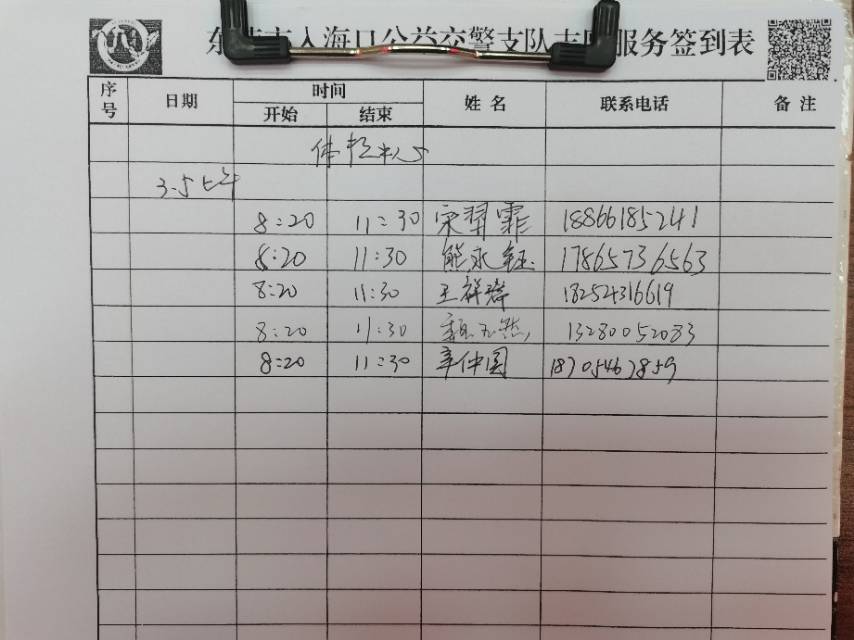 入海口公益交警支队志愿服务签到表
序号 日期 时间 姓名 联系电话 备注
开始 结束
体检中心
3.5上午
8:20 11:30 宋羿霏 18866185241
8:20 11:30 熊永钰 17865736563
8:20 11:30 王祥瑞 18254316619
8:20 11:30 13280052083
8:20 11:30 辛仲国 18705467859